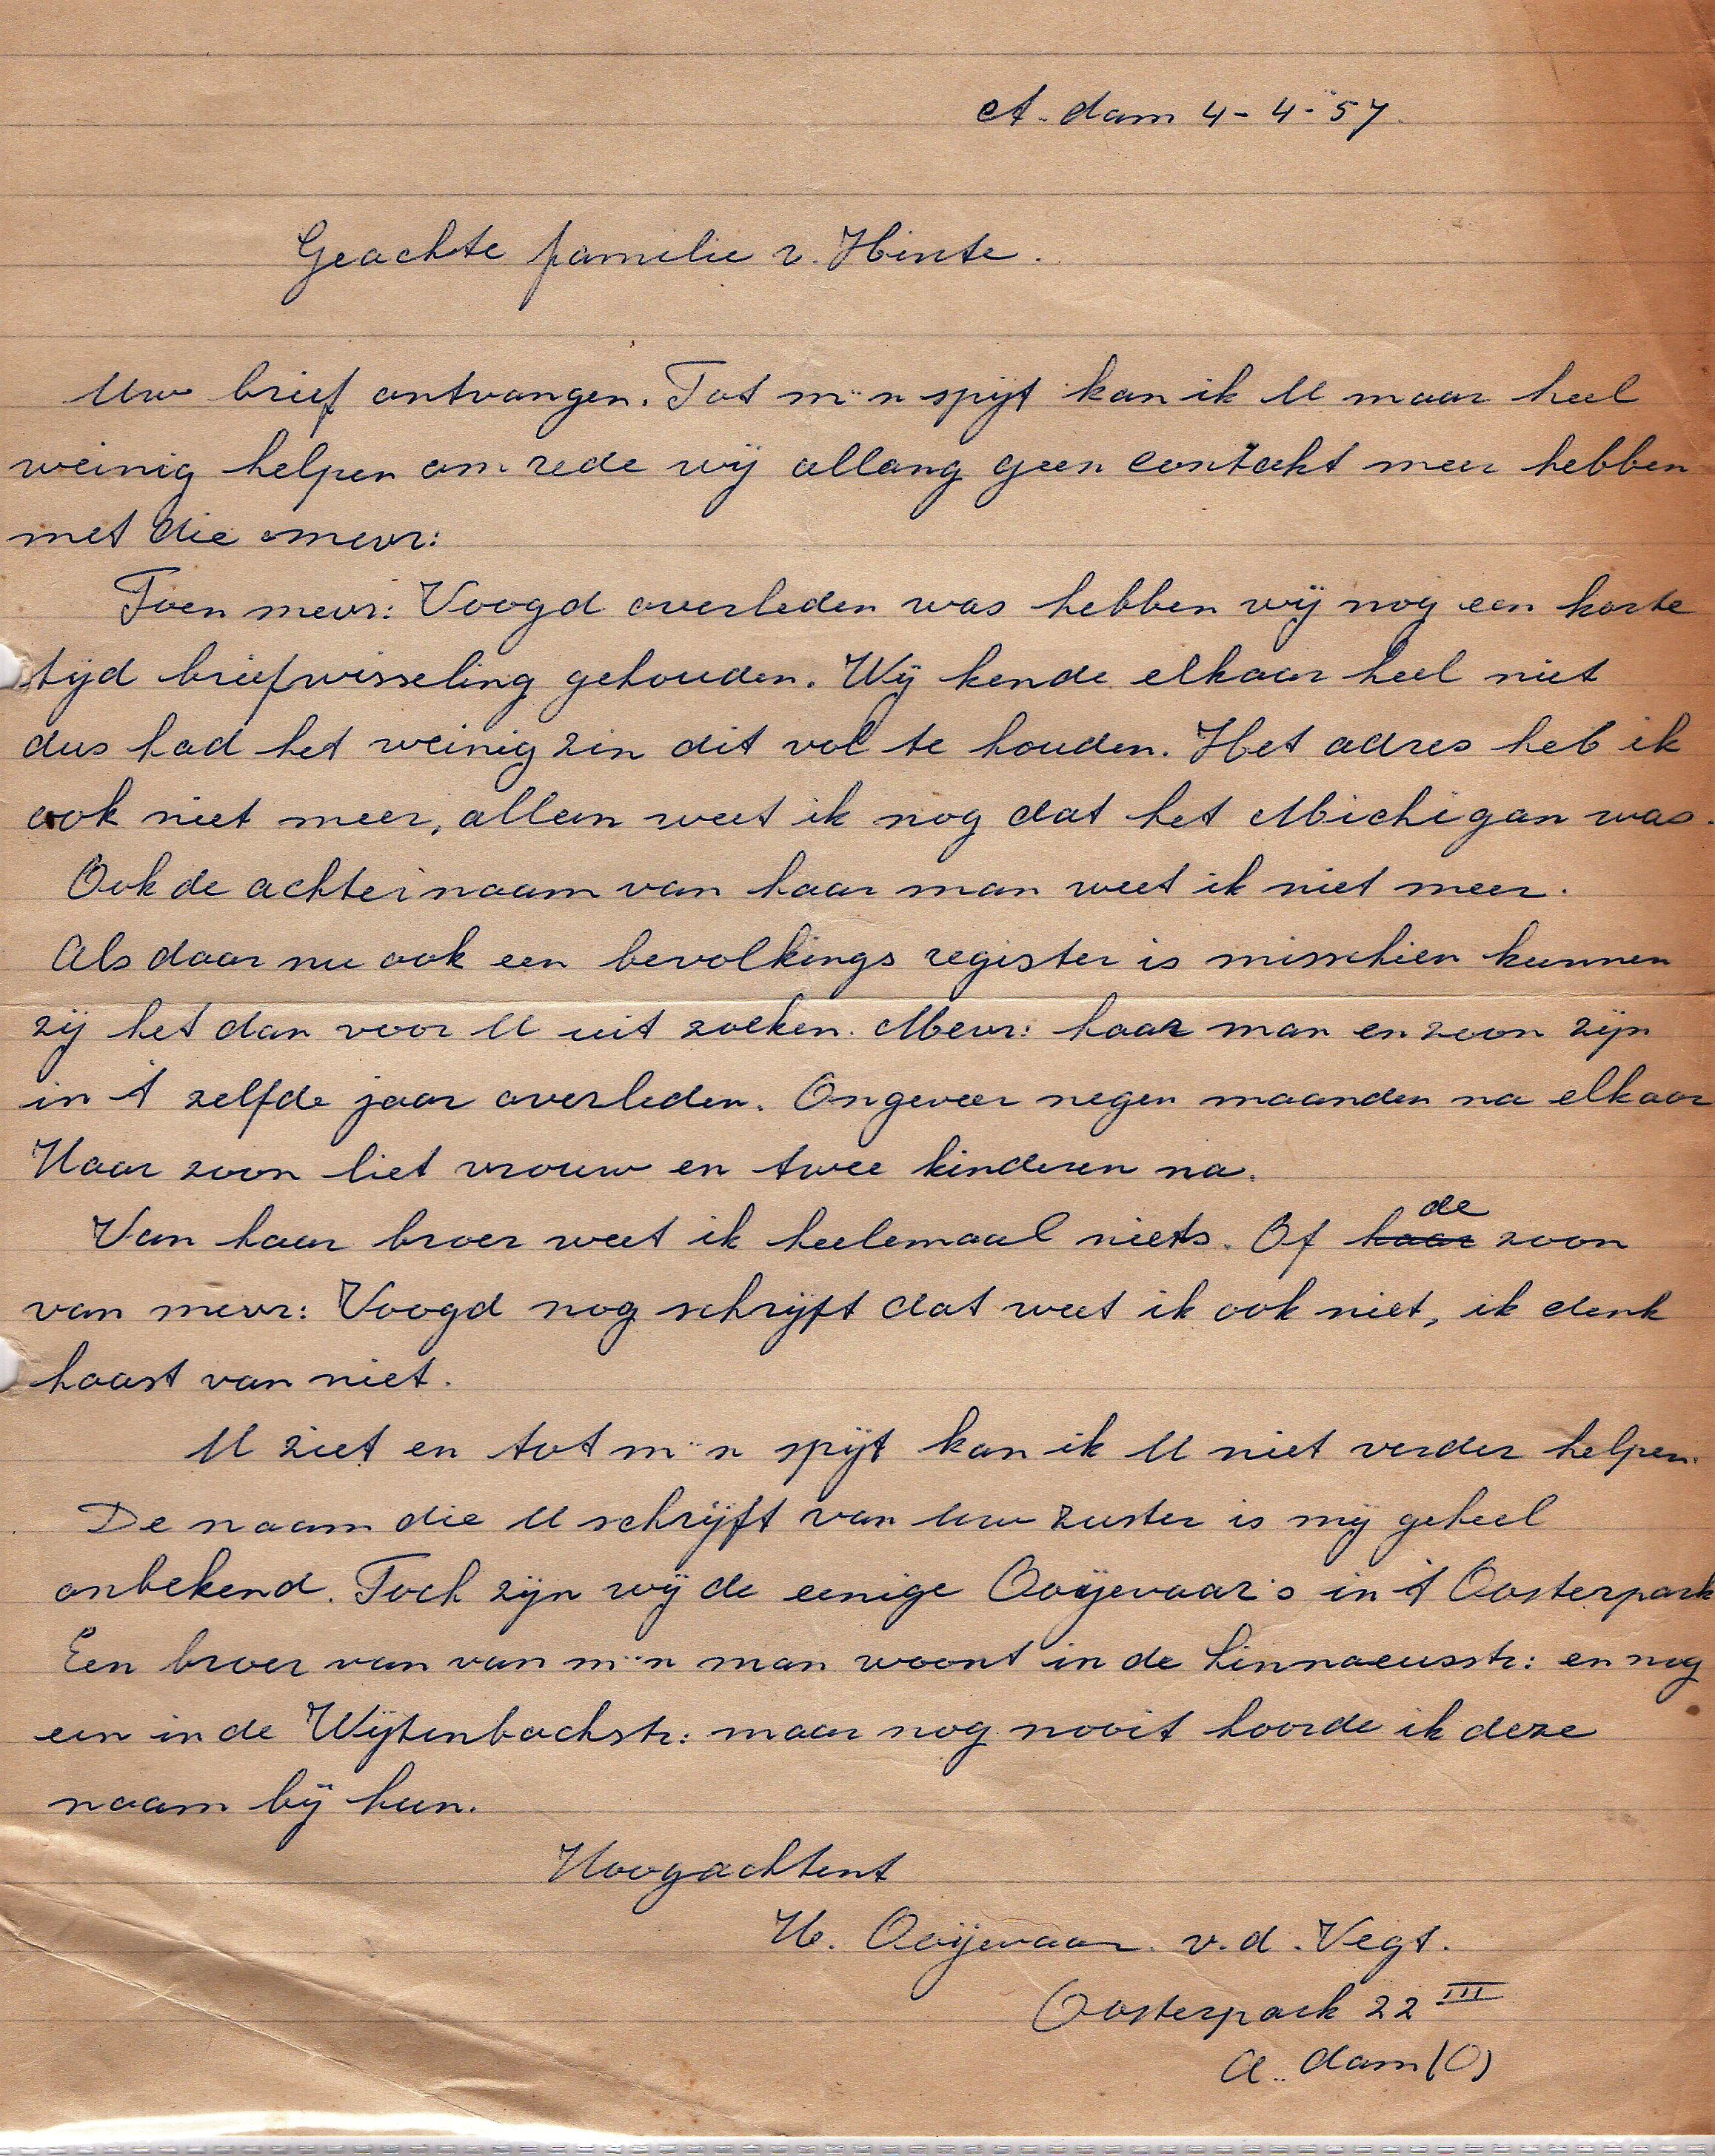 A. dam 4-4-'57.
Geachte familie v. Hinte.
Uw brief ontvangen. Tot m'n spijt kan ik U maar heel
weinig helpen om rede wij allang geen contakt meer hebben
met die mevr:
Toen mevr: Voogd overleden was hebben wij nog een korte
tijd briefwisseling gehouden. Wij kende elkaar heel niet
dus had het weinig zin dit vol te houden. Het adres heb ik
ook niet meer, alleen weet ik nog dat het Michigan was.
Ook de achternaam van haar man weet ik niet meer.
Als daar nu ook een bevolkings register is misschien kunnen
zij het dan voor U uit zoeken. Mevr: haar man en zoon zijn
in 't zelfde jaar overleden. Ongeveer negen maanden na elkaar
Haar zoon liet vrouw en twee kinderen na.
Van haar broer weet ik heelemaal niets. Of haar de zoon
van mevr: Voogd nog schrijft dat weet ik ook niet, ik denk
haast van niet.
U ziet en tot m'n spijt kan ik U niet verder helpen.
De naam die U schrijft van Uw zuster is mij geheel
onbekend. Toch zijn wij de eenige Ooijevaar's in 't Oosterpark
Een broer van van m'n man woont in de Linnaeusstr: en nog
een in de Wijtenbachstr: maar nog nooit hoorde ik deze
naam bij hun.
Hoogachtent
H. Ooijevaar. v.d. Vegt.
Oosterpark 22 III
A.. dam (O)